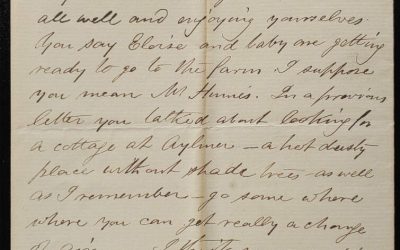 all well and enjoying yourselves.
You say Eloise and baby are getting
ready to go to the farm. I suppose
you mean Mr
In a previous
letter you talked about looking for
a cottage at Aylmer – a hot dusty
place without shade trees as well
as I remember – go some where
where you can get really a change